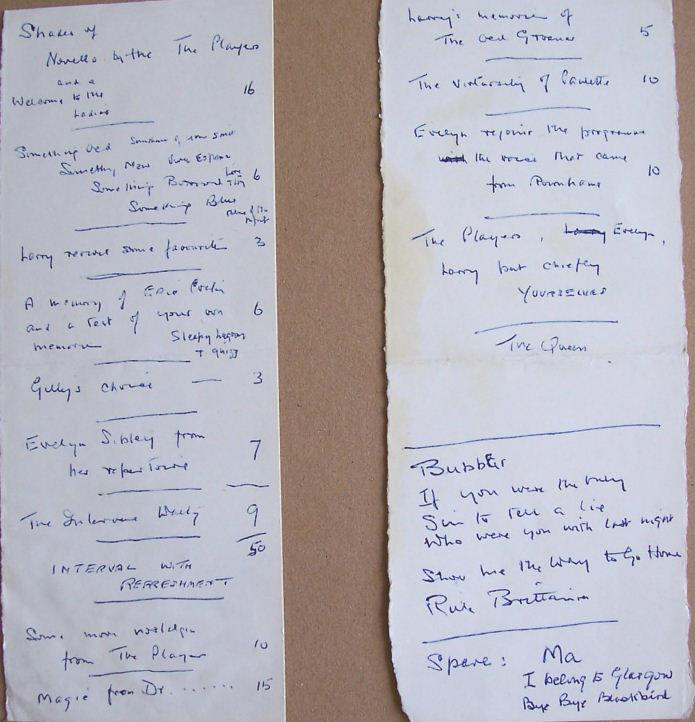 Shades of
Novello by the The Players
and a
Welcome to the
Ladies
16
Something Old Sunshine of your Smile
Something New Viva Espana
Something Borrowed 6
Something Blue
Larry revives some favourites 3
A memory of Eric
and a test of your own 6
memories Sleepy Lagoon
+ quiz
Gilly's choice — 3
Evelyn Sibley from
her repertoire 7
The Interview 9
50
INTERVAL WITH
REFRESHMENT
Some more nostalgia
from The Players 10
Magic from Dr....... 15
Larry's memories of
The Old Groaner 5
The virtuosity of Paulette 10
Evelyn rejoins the programme
with the voice that came
from 10
The Players, Larry Evelyn,
Larry but chiefly
YOURSELVES
The Queen
Bubbles
If you were the only
Sin to tell a lie
Who were you with last night
Show me the way to Go Home
Rule Brittania
Spare: Ma
I belong to Glasgow
Bye Bye Blackbird